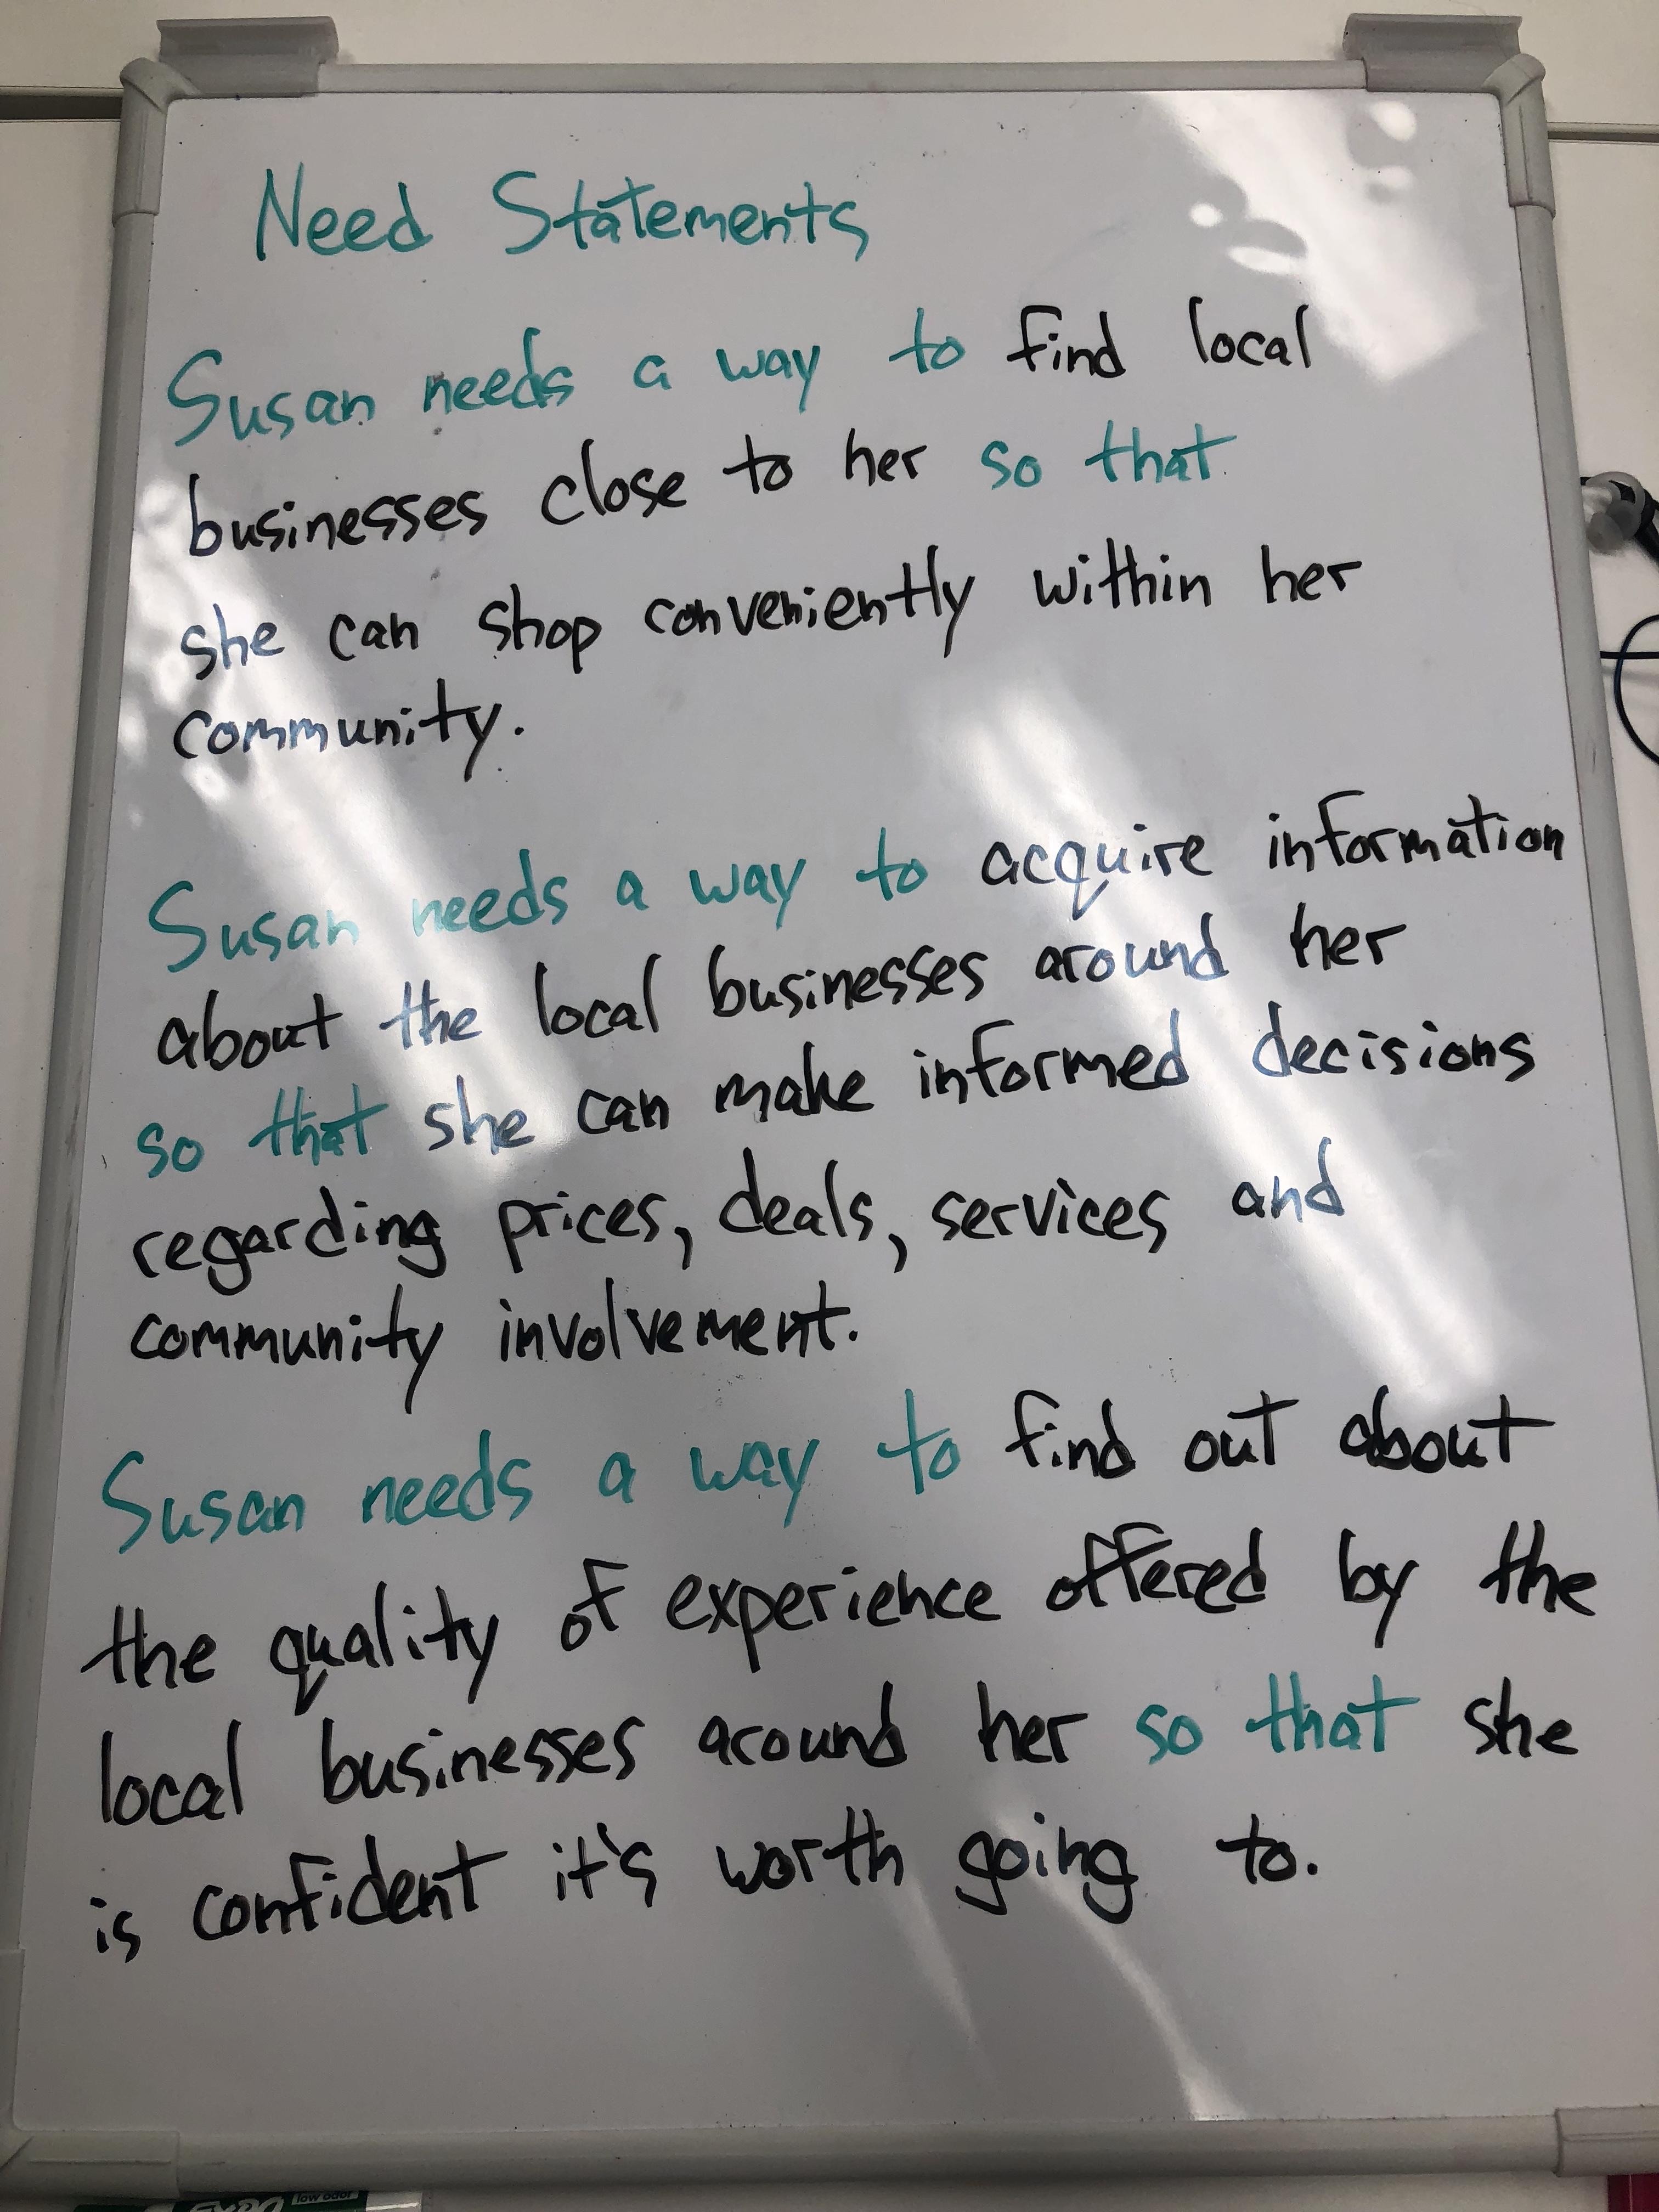 Need Statements
Susan needs a way to find local
businesses close to her so that
she can shop conveniently within her
community.
Susan needs a way to acquire information
about the local businesses around her
so that she can make informed decisions
regarding prices, deals, services and
community involvement.
Susan needs a way to find out about
the quality of experience offered by the
local businesses around her so that she
is confident it's worth going to.
EXPO low odor